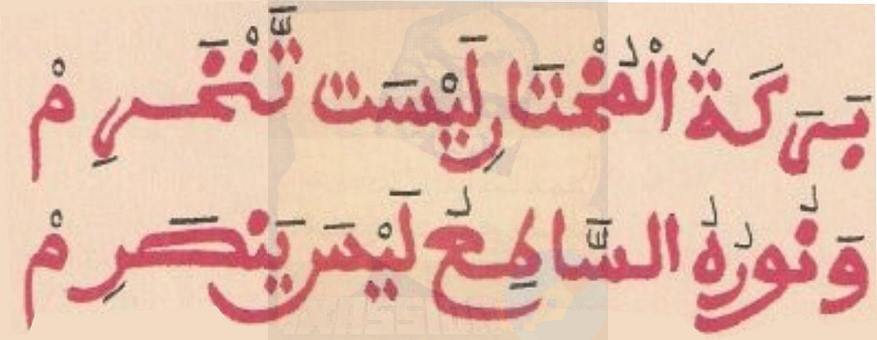 بَرَكَةُ الْمُخْتَارِ لَيْسَت تَّنْخَرِمْ
وَنُورُهُ السَّاطِعُ لَيْسَ يَنصَرِمْ